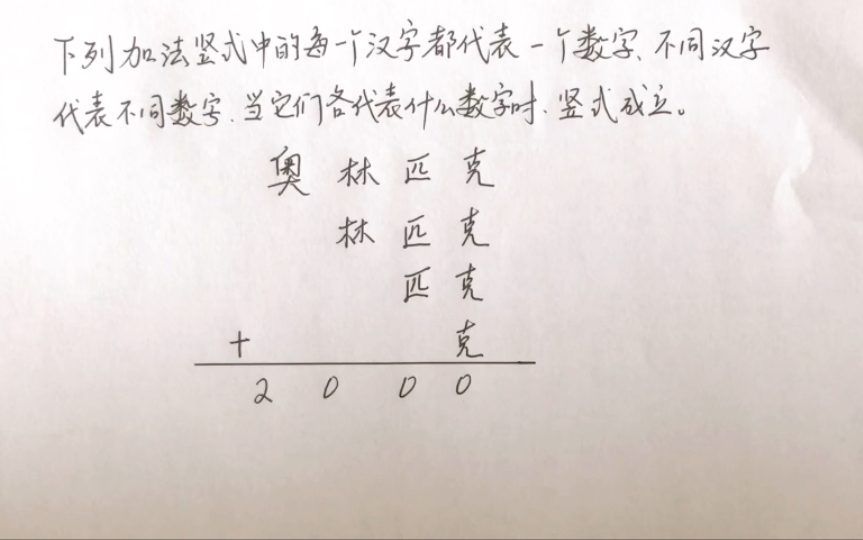 下列加法竖式中的每一个汉字都代表一个数字、不同汉字
代表不同数字、当它们各代表什么数字时、竖式成立。
奥 林 匹 克
林 匹 克
匹 克
+ 克
2 0 0 0